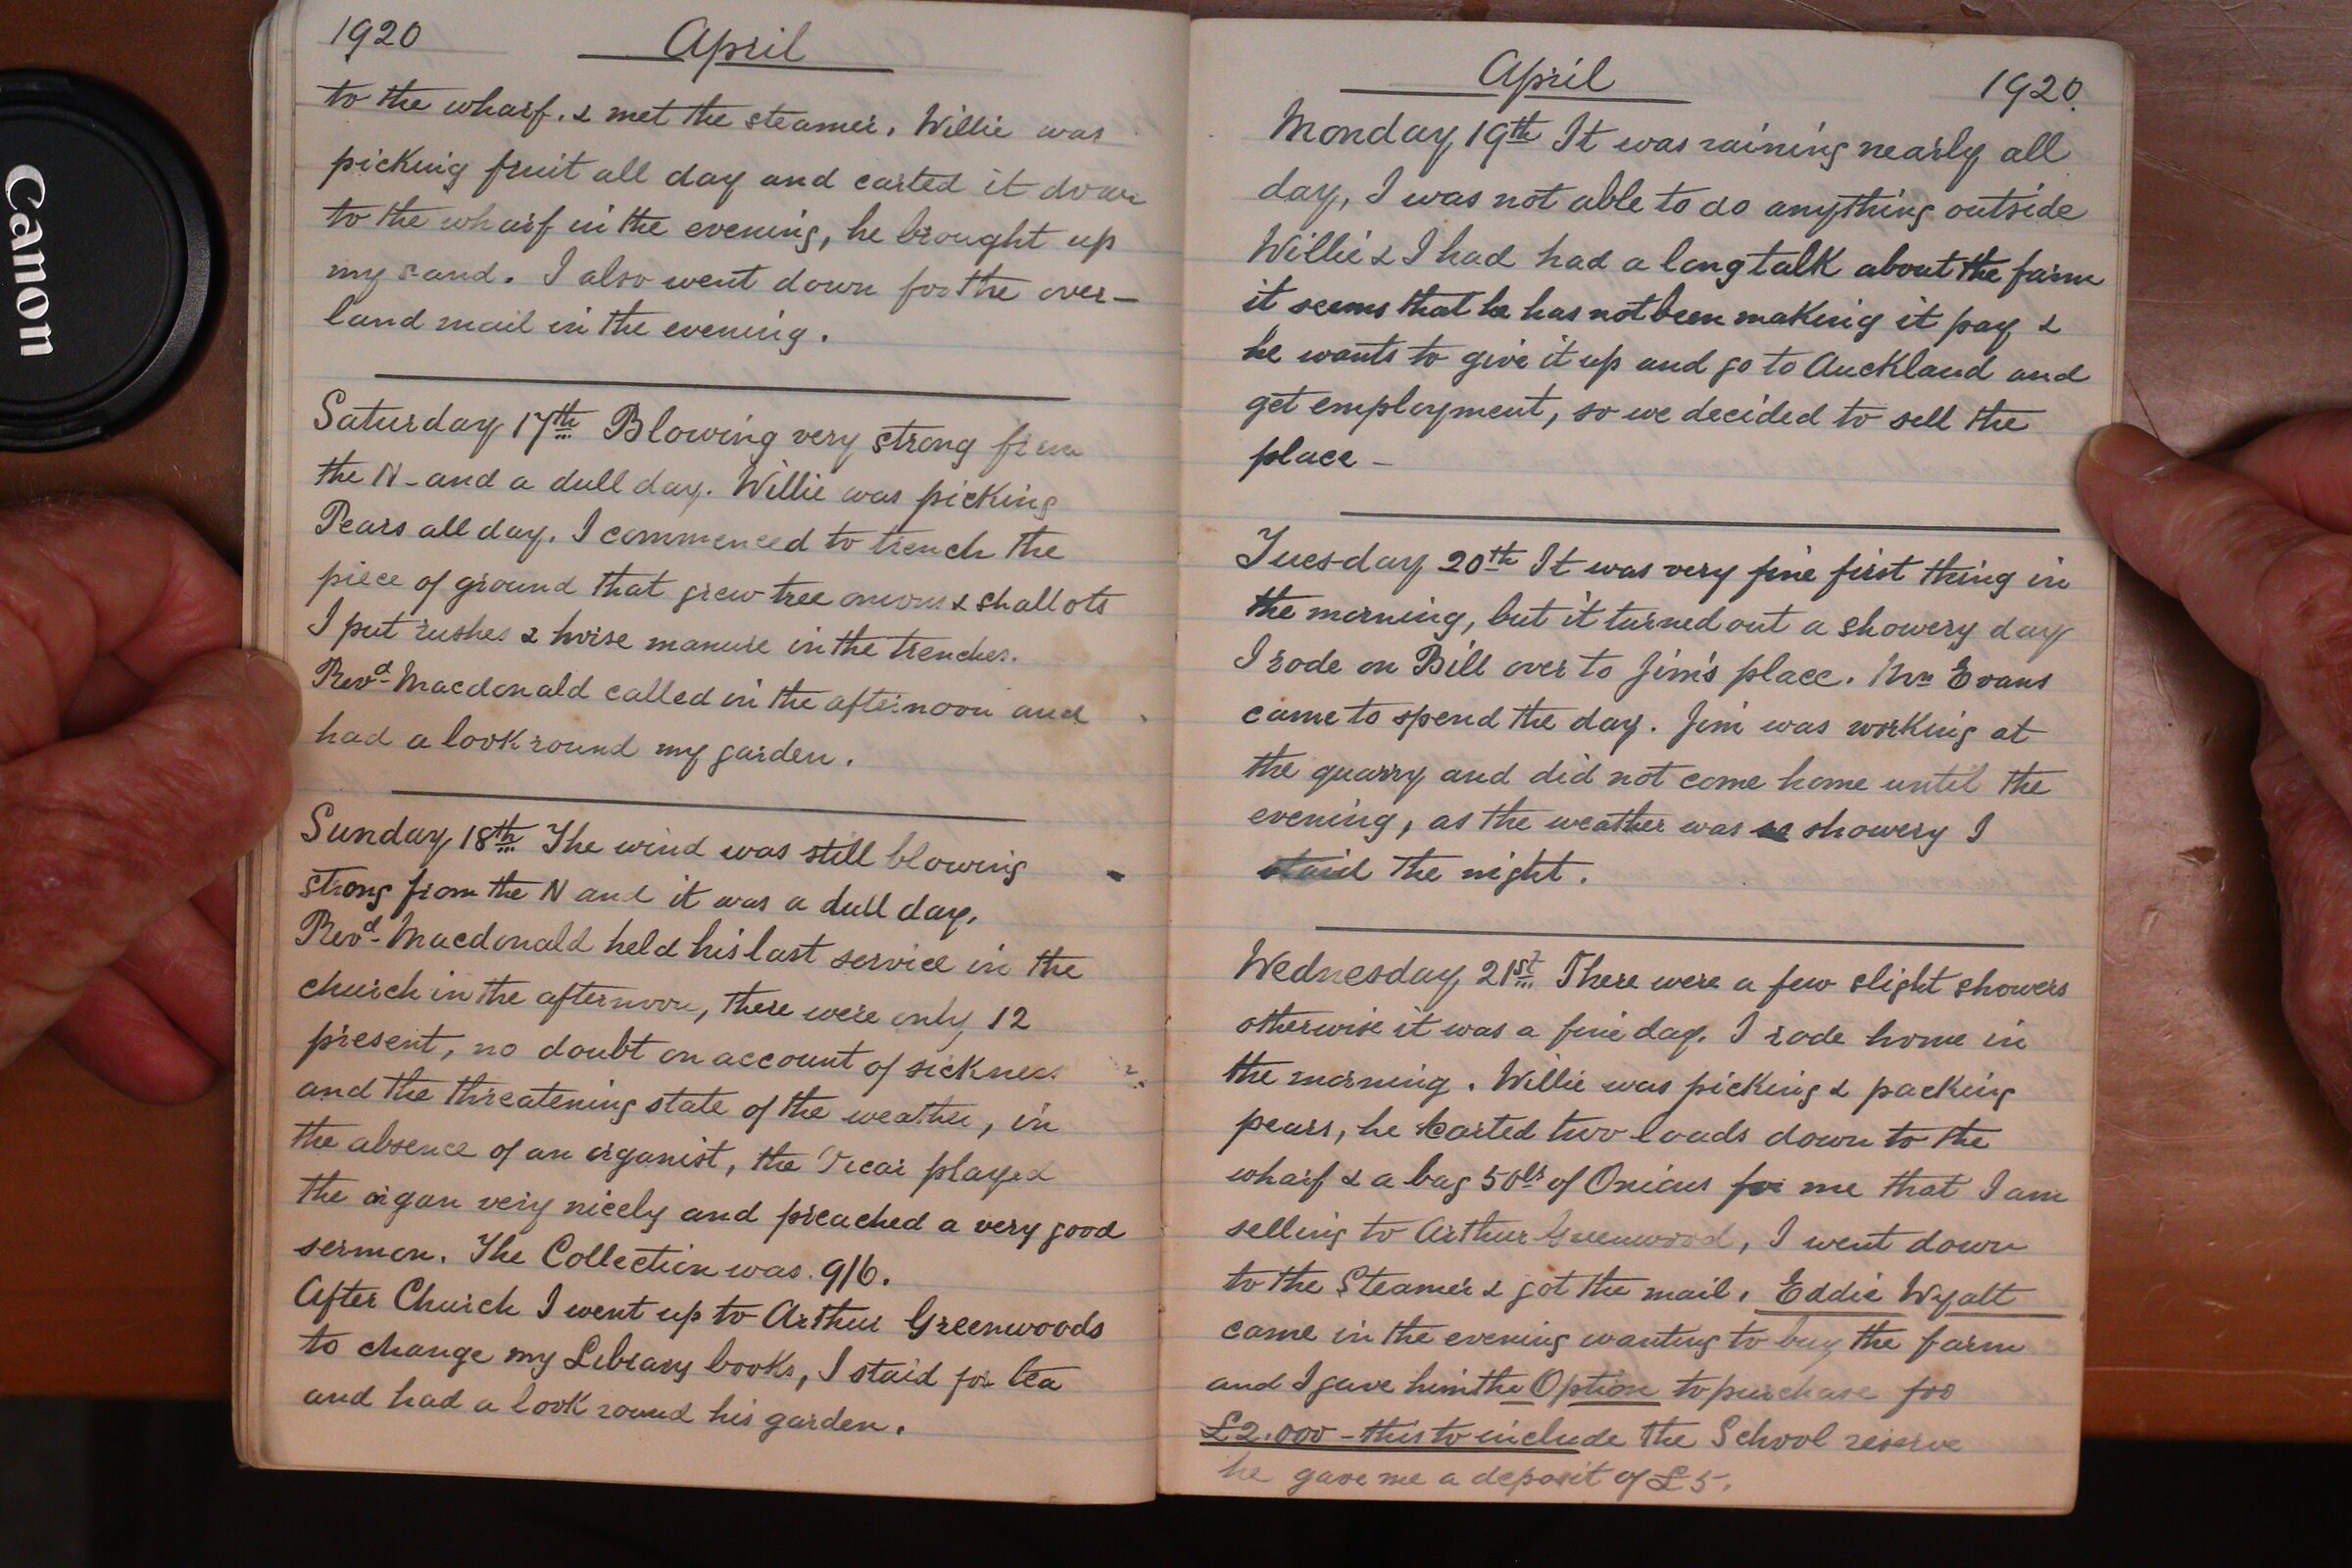 Canon
1920 April
to the wharf. & met the steamer. Willie was
picking fruit all day and carted it down
to the wharf in the evening, he brought up
my sand. I also went down for the over-
land mail in the evening.
Saturday 17th Blowing very strong from
the N - and a dull day. Willie was picking
Pears all day. I commenced to trench the
piece of ground that grew tree onions & shallots
I put rushes & horse manure in the trenches.
Revd. Macdonald called in the afternoon and
had a look round my garden.
Sunday 18th The wind was still blowing
strong from the N and it was a dull day.
Revd. Macdonald held his last service in the
church in the afternoon, there were only 12
present, no doubt on account of sickness
and the threatening state of the weather, in
the absence of an organist, the Vicar played
the organ very nicely and preached a very good
sermon. The Collection was 9/6.
After Church I went up to Arthur Greenwoods
to change my Library books, I staid for tea
and had a look round his garden.
April 1920.
Monday 19th It was raining nearly all
day, I was not able to do anything outside
Willie & I had had a long talk about the farm
it seems that he has not been making it pay &
he wants to give it up and go to Auckland and
get employment, so we decided to sell the
place -
Tuesday 20th It was very fine first thing in
the morning, but it turned out a showery day
I rode on Bill over to Jim's place. Mrs Evans
came to spend the day. Jim was working at
the quarry and did not come home until the
evening, as the weather was showery I
staid the night.
Wednesday 21st There were a few slight showers
otherwise it was a fine day. I rode home in
the morning. Willie was picking & packing
pears, he carted two loads down to the
wharf & a bag 50lbs of Onions for me that I am
selling to Arthur Greenwood, I went down
to the Steamer & got the mail. Eddie Wyatt
came in the evening wanting to buy the farm
and I gave him the Option to purchase for
£2.000 - this to include the School reserve
he gave me a deposit of £5.